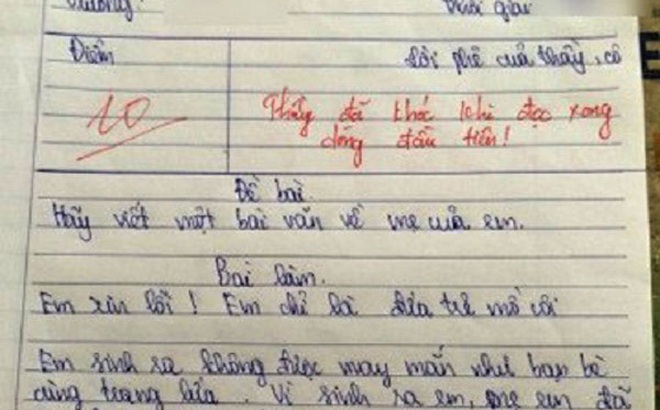 Trường:
Thời gian
Điểm
Lời phê của thầy, cô
10
Thầy đã khóc khi đọc xong
dòng đầu tiên!
Đề bài
Hãy viết một bài văn về mẹ của em.
Bài làm.
Em xin lỗi! Em chỉ là đứa trẻ mồ côi
Em sinh ra không được may mắn như bạn bè
cùng trang lứa. Vì sinh ra em, mẹ em đã